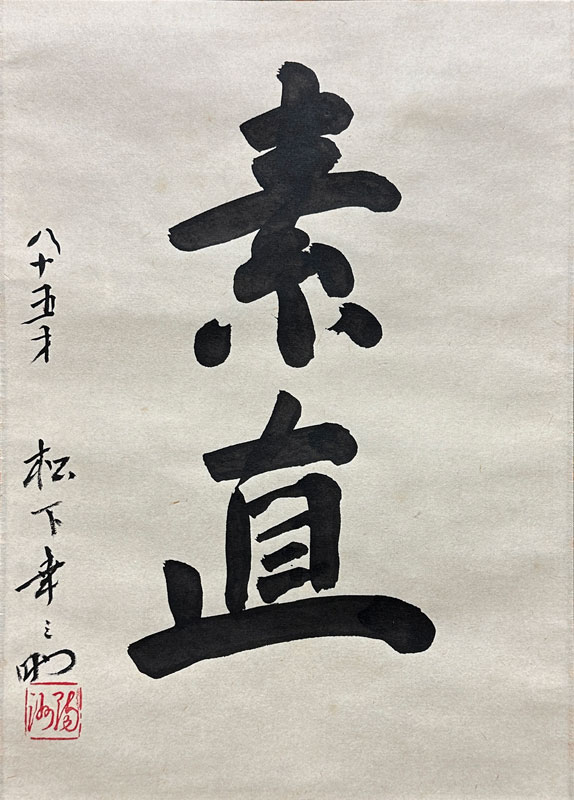 素直
八十五才 松下幸之助